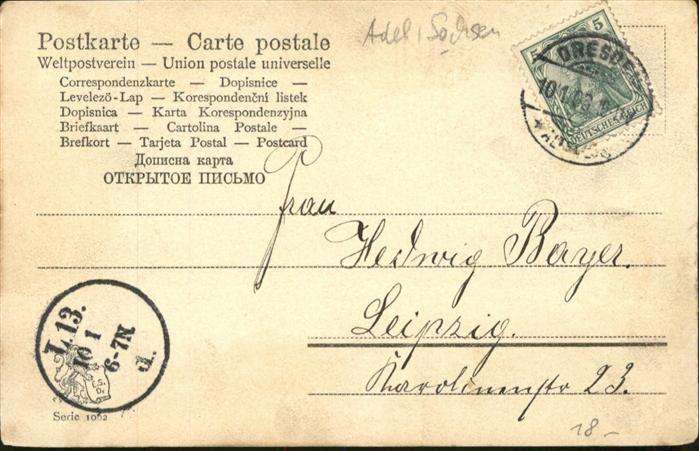 Adel, Sachsen
Postkarte — Carte postale
Weltpostverein — Union postale universelle
Correspondenzkarte — Dopisnice —
Levelező-Lap — Korespondenční listek
Dopisnica — Karta Korespondenzyjna
Briefkaart — Cartolina Postale —
Brefkort — Tarjeta Postal — Postcard
Дописна карта
ОТКРЫТОЕ ПИСЬМО
5 5
DEUTSCHES REICH
DRESDEN
ALTST.
Frau
Hedwig Bayer.
Leipzig.
Karolinenstr 23.
L 13.
10 1
6-7N
d.
Serie 1062
18 –